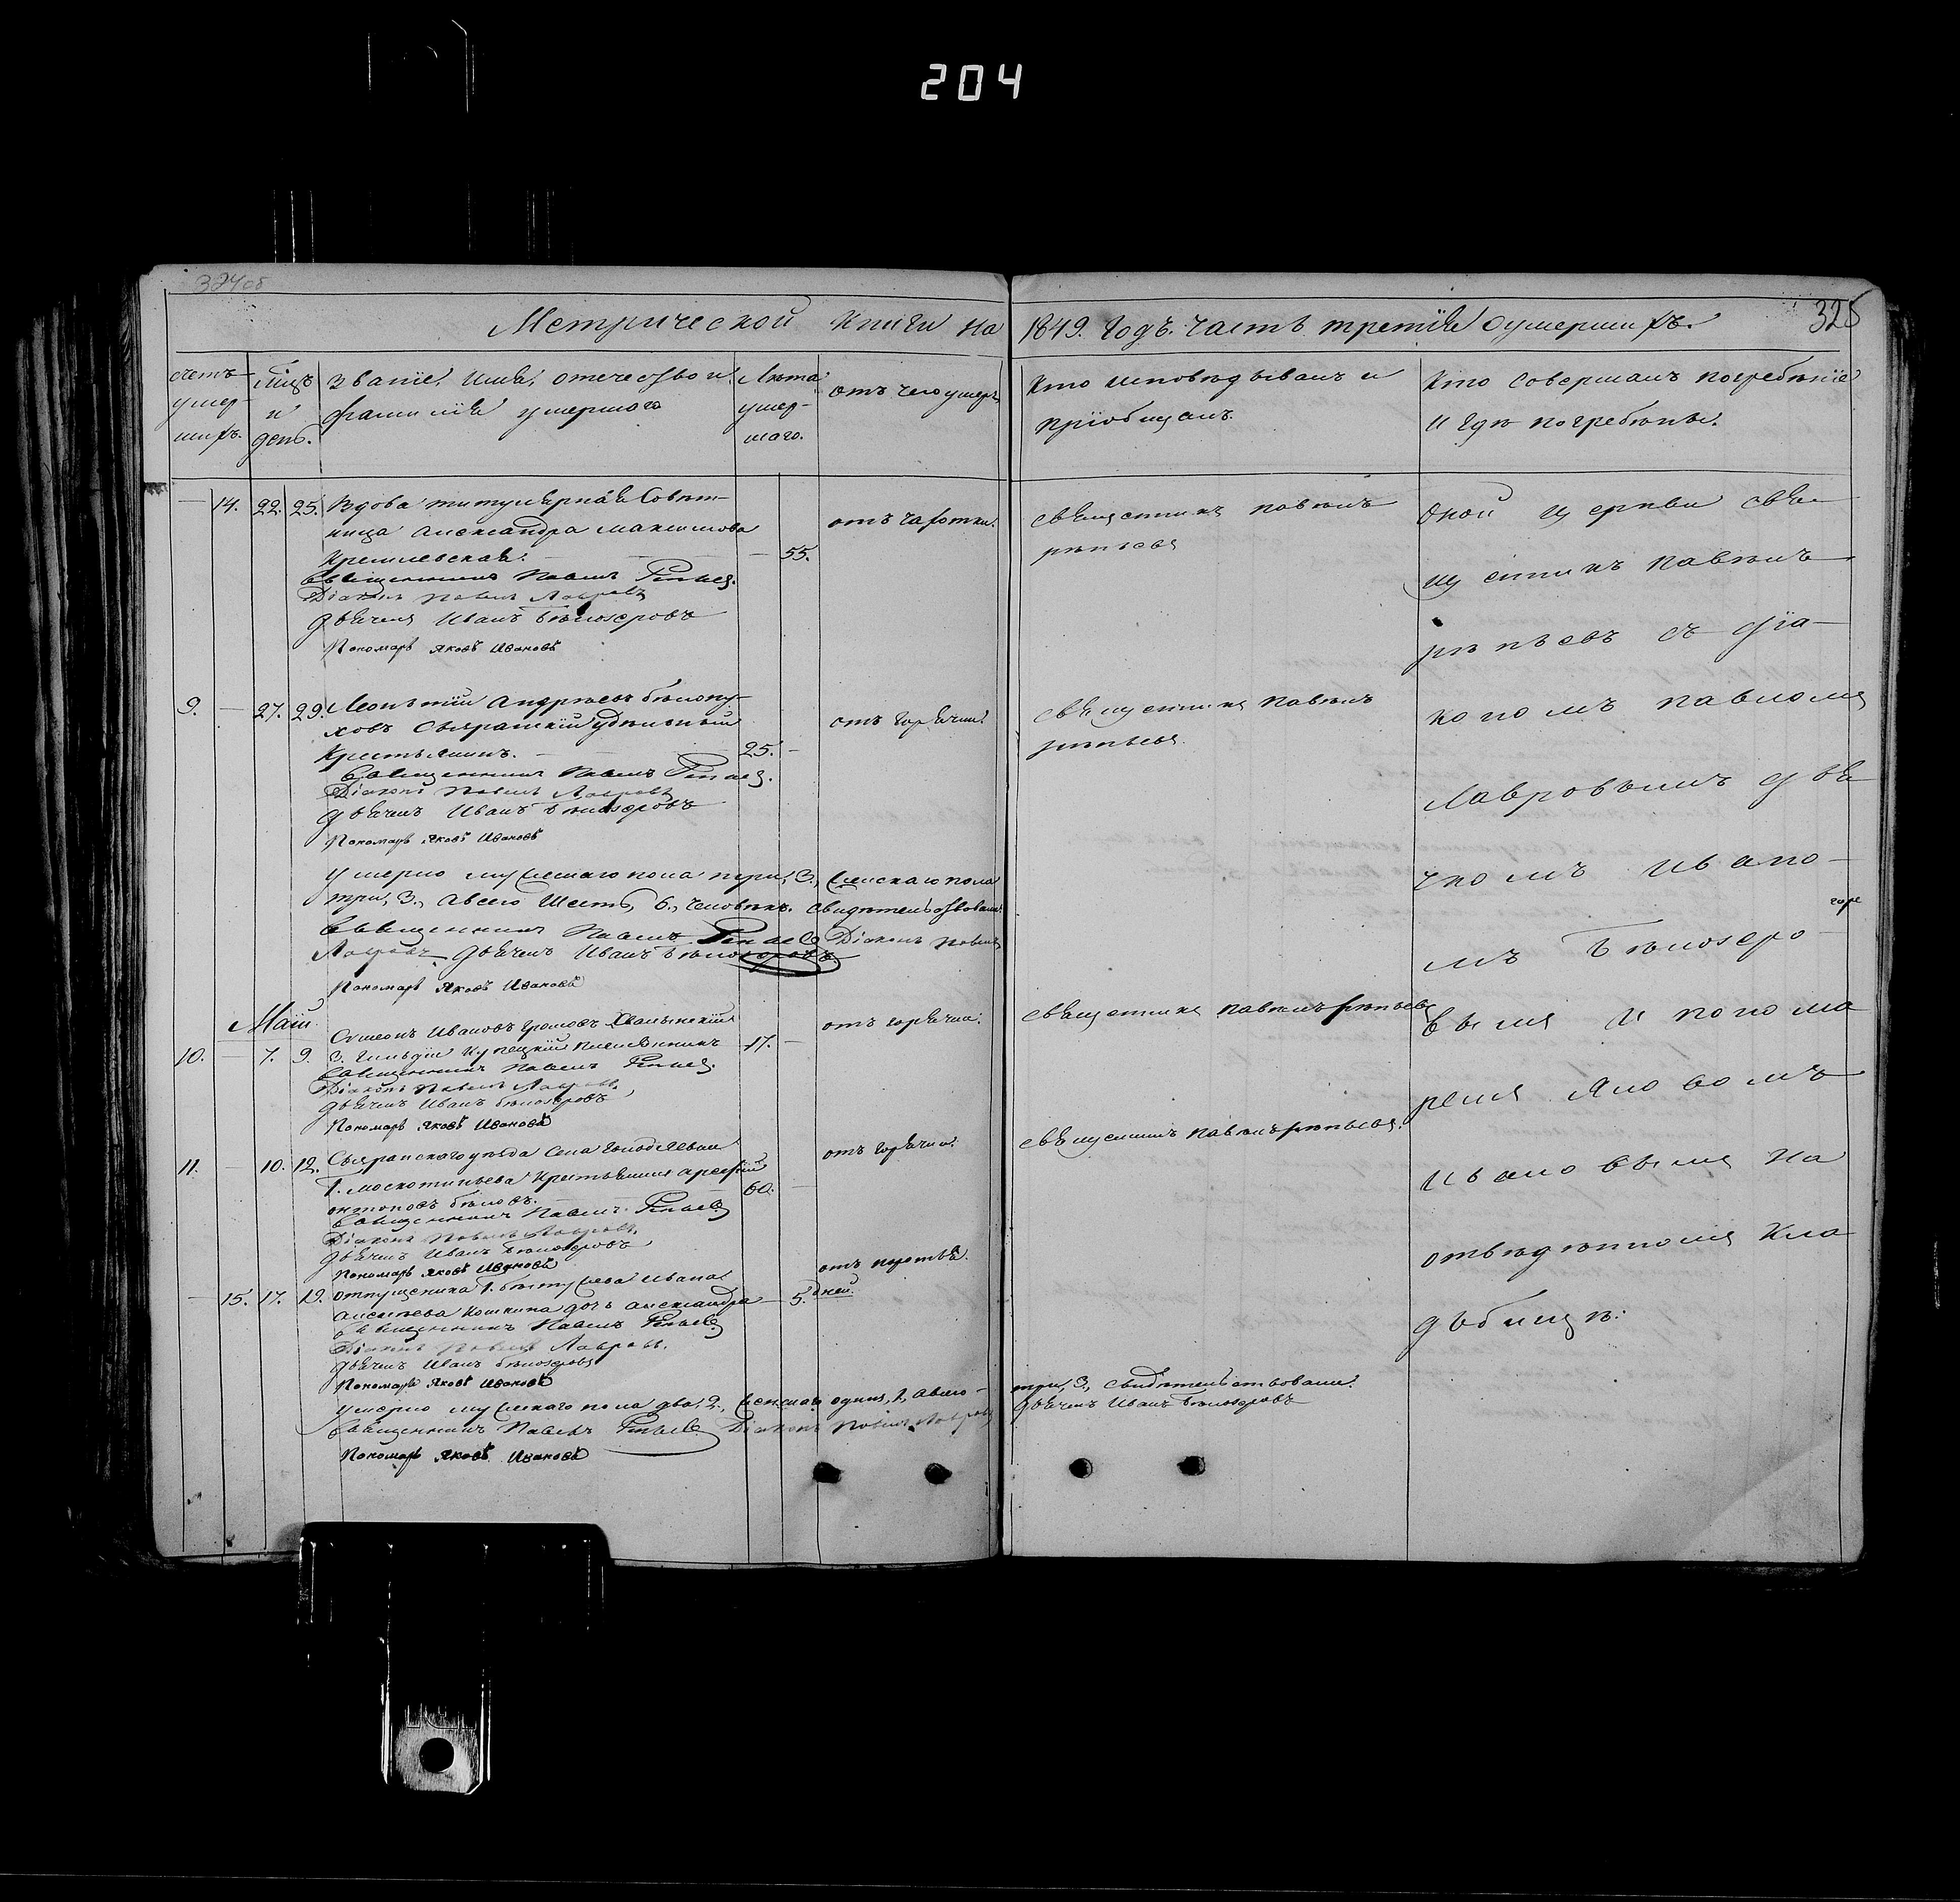 204
324об
325
Метрической книги на 1849. годъ. часть третія о умершихъ.
счетъ умер-шихъ.
мѣцъ и день.
званіе, имя, отечество и
фамилія умершаго
лѣта умер-шаго.
отъ чего умеръ
кто исповѣдывалъ и
пріобщалъ.
кто совершалъ погребеніе
и гдѣ погребены.
14. 22. 25. вдова титулярная совѣт-
ница александра максимова
55.
отъ чахотки.
священникъ павелъ
рѣпьевъ
Священникъ Павелъ Рѣпьевъ.
Діаконъ Павелъ Лавровъ
дьячекъ Иванъ Бѣлозеровъ
Пономарь Яковъ Ивановъ
9. 27. 29. Леонтій андреевъ бѣлопу-
ховъ сызранскій удѣльный
крестьянинъ. 25.
отъ горячки.
священникъ павелъ
рѣпьевъ.
Священникъ Павелъ Рѣпьевъ.
Діаконъ Павелъ Лавровъ
дьячекъ Иванъ Бѣлозеровъ
Пономарь Яковъ Ивановъ
умерло мужескаго пола три, 3., женскаго пола
три, 3., а всего шесть, 6., человѣкъ. свидѣтельствовали:
Священникъ Павелъ Рѣпьевъ Діаконъ Павелъ
Лавровъ дьячекъ Иванъ Бѣлозеровъ.
Пономарь Яковъ Ивановъ
Маій.
10. 7. 9. Симеонъ Ивановъ Громовъ Хвалынскій
3. гильдіи купецкій племянникъ 17.
отъ горячки.
священникъ павелъ рѣпьевъ
Священникъ Павелъ Рѣпьевъ.
Діаконъ Павелъ Лавровъ.
дьячекъ Иванъ бѣлозеровъ
Пономарь Яковъ Ивановъ
11. 10. 12. Сызранскаго уѣзда села
крестьянинъ
бѣловъ. 60.
отъ горячки.
священникъ павелъ рѣпьевъ.
Священникъ Павелъ Рѣпьевъ
Діаконъ Павелъ Лавровъ.
дьячекъ Иванъ Бѣлозеровъ
Пономарь Яковъ Ивановъ
15. 17. 19. отпущеника г. бестужева ивана
алексѣева кошкина дочь александра 5. дней.
Священникъ Павелъ Рѣпьевъ
Діаконъ Павелъ Лавровъ.
дьячекъ Иванъ бѣлозеровъ
Пономарь Яковъ Ивановъ
умерло мужскаго пола два, 2., женскаго одна, 1, а всего
три, 3., свидѣтельствовали.
Священникъ Павелъ Рѣпьевъ Діаконъ Павелъ Лавровъ
дьячекъ Иванъ Бѣлозеровъ
Пономарь Яковъ Ивановъ
оной церкви свя-
щенникъ павелъ
рѣпьевъ съ діа-
кономъ павломъ
лавровымъ дья
чкомъ ивано-
мъ Бѣлозеро-
вымъ и понома
ремъ Яковомъ
ивановымъ на
отведенномъ кла
дбищѣ.